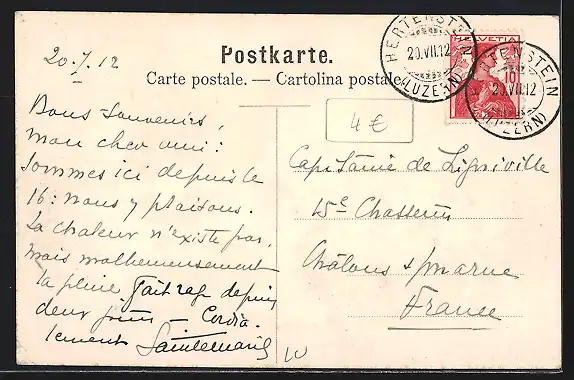 20.7.12
Postkarte.
Carte postale. — Cartolina postale
HERTENSTEIN
20.VII.12
(LUZERN)
HELVETIA
10
HERTENSTEIN
20.VII.12
(LUZERN)
4 €
Bons souvenirs,
mon cher ami:
Sommes ici depuis le
16: nous y plaisons.
La chaleur n'existe pas,
mais malheureusement
la pluie fait rage depuis
deux jours — Cordia-
lement
Capitaine de Ligniville
15e Chasseurs
Châlons s/ Marne
France